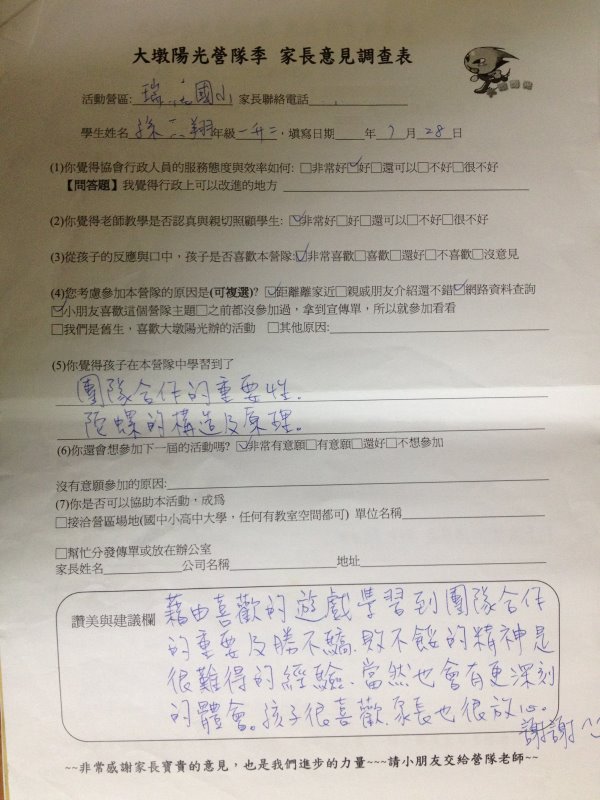 大墩陽光營隊季 家長意見調查表
活動營區: 瑞 國小 家長聯絡電話
學生姓名 孫 翔 年級 一升二，填寫日期 年 7 月 28 日
(1)你覺得協會行政人員的服務態度與效率如何: □非常好☑好□還可以□不好□很不好
【問答題】我覺得行政上可以改進的地方
(2)你覺得老師教學是否認真與親切照顧學生: ☑非常好□好□還可以□不好□很不好
(3)從孩子的反應與口中，孩子是否喜歡本營隊:☑非常喜歡□喜歡□還好□不喜歡□沒意見
(4)您考慮參加本營隊的原因是(可複選)? ☑距離離家近□親戚朋友介紹還不錯☑網路資料查詢
☑小朋友喜歡這個營隊主題□之前都沒參加過，拿到宣傳單，所以就參加看看
□我們是舊生，喜歡大墩陽光辦的活動 □其他原因:
(5)你覺得孩子在本營隊中學習到了
團隊合作的重要性.
陀螺的構造及原理。
(6)你還會想參加下一屆的活動嗎? ☑非常有意願□有意願□還好□不想參加
沒有意願參加的原因:
(7)你是否可以協助本活動，成為
□接洽營區場地(國中小高中大學，任何有教室空間都可) 單位名稱
□幫忙分發傳單或放在辦公室
家長姓名 公司名稱 地址
讚美與建議欄
藉由喜歡的遊戲學習到團隊合作
的重要及勝不驕.敗不餒的精神是
很難得的經驗.當然也會有更深刻
的體會。孩子很喜歡.家長也很放心.
謝謝
~~非常感謝家長寶貴的意見，也是我們進步的力量~~~請小朋友交給營隊老師~~